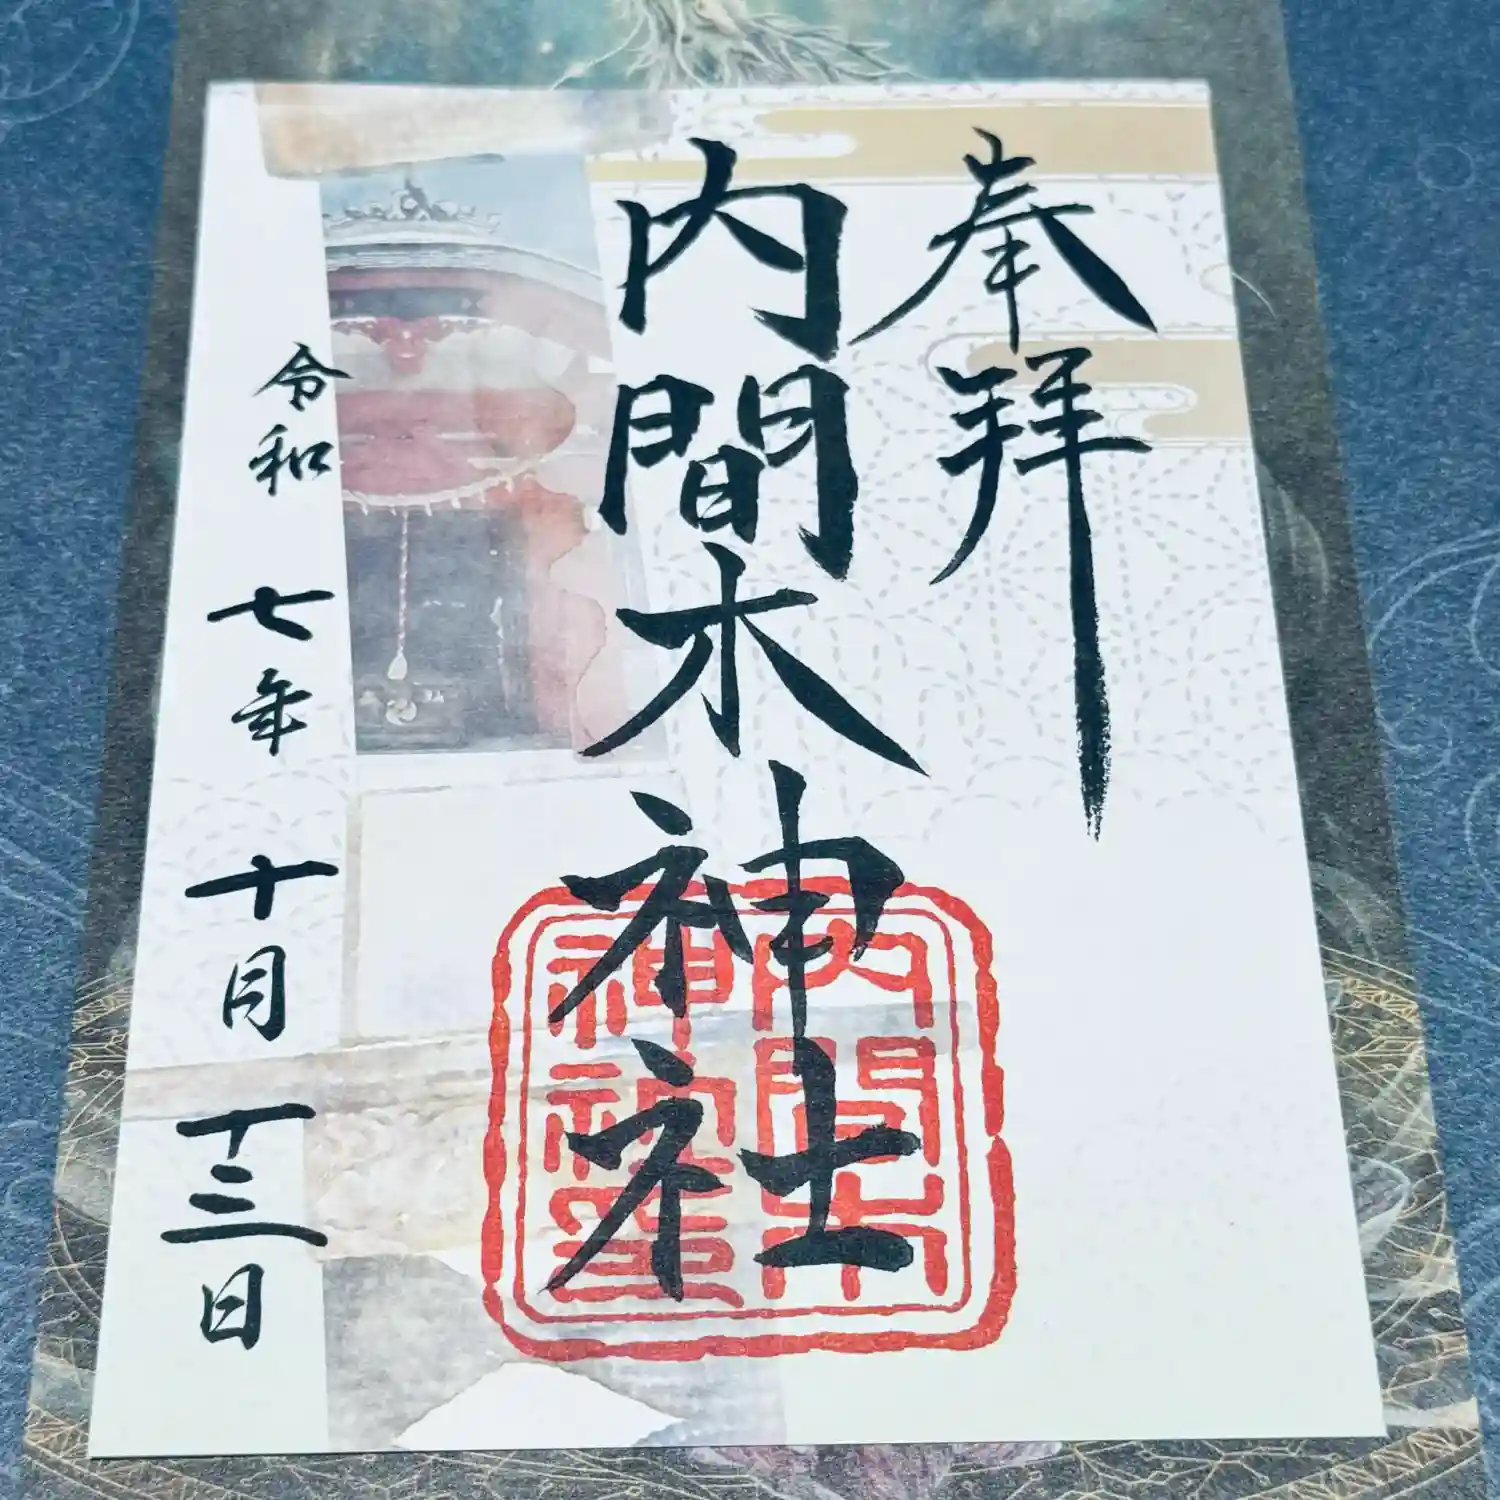 奉拝
内間木神社
内間木神社璽
令和七年十月十三日